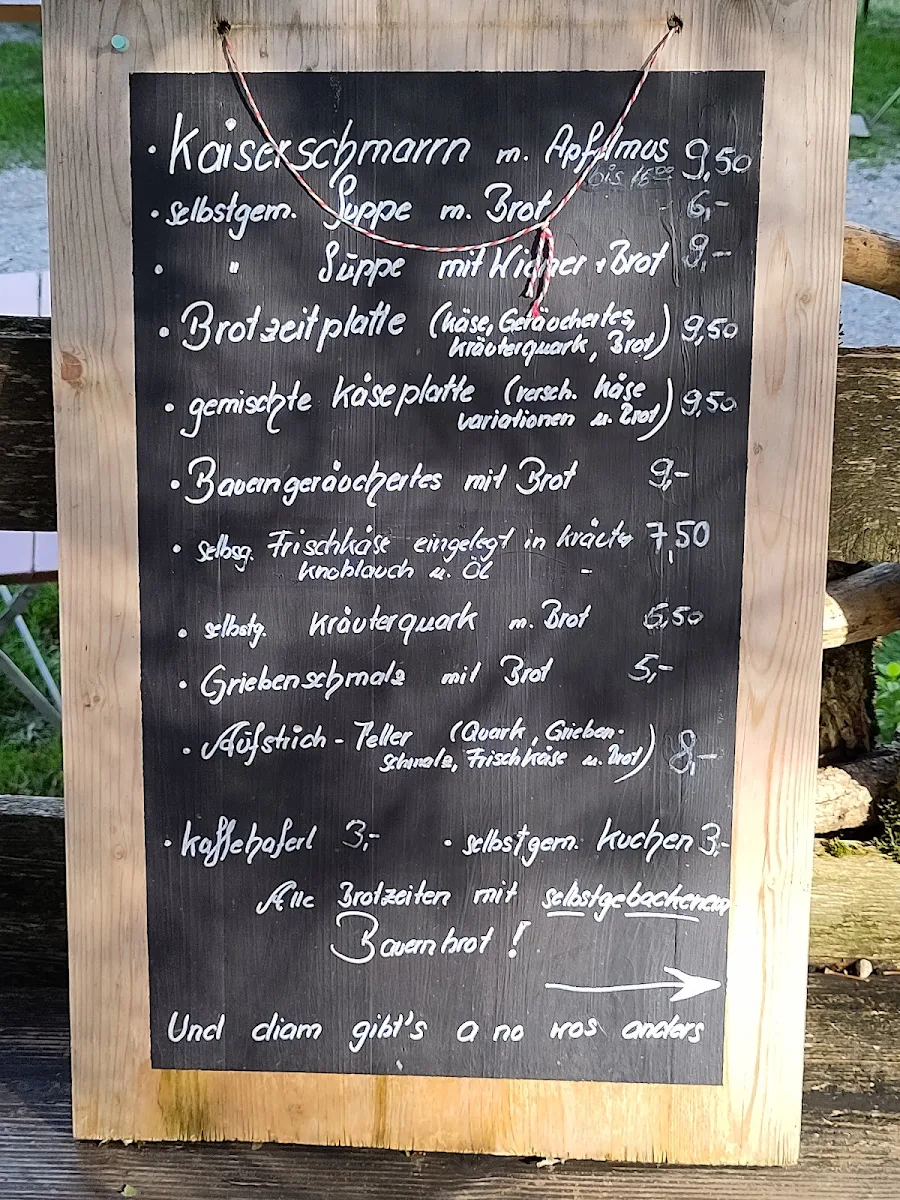 · Kaiserschmarrn m. Apfelmus 9,50
bis 16⁰⁰
· selbstgem. Suppe m. Brot 6,-
· " Suppe mit Wiener + Brot 9,-
· Brotzeitplatte (Käse, Geräuchertes, 9,50
Kräuterquark, Brot)
· gemischte Käseplatte (versch. Käse 9,50
variationen u. Brot)
· Bauerngeräuchertes mit Brot 9,-
· selbsg. Frischkäse eingelegt in Kräuter 7,50
Knoblauch u. Öl -
· selbstg. Kräuterquark m. Brot 6,50
· Griebenschmalz mit Brot 5,-
· Aufstrich-Teller (Quark, Grieben- 8,-
schmalz, Frischkäse u. Brot)
· Kaffehaferl 3,- · selbstgem. Kuchen 3,-
Alle Brotzeiten mit selbstgebackenem
Bauernbrot !
Und diam gibt's a no wos anders